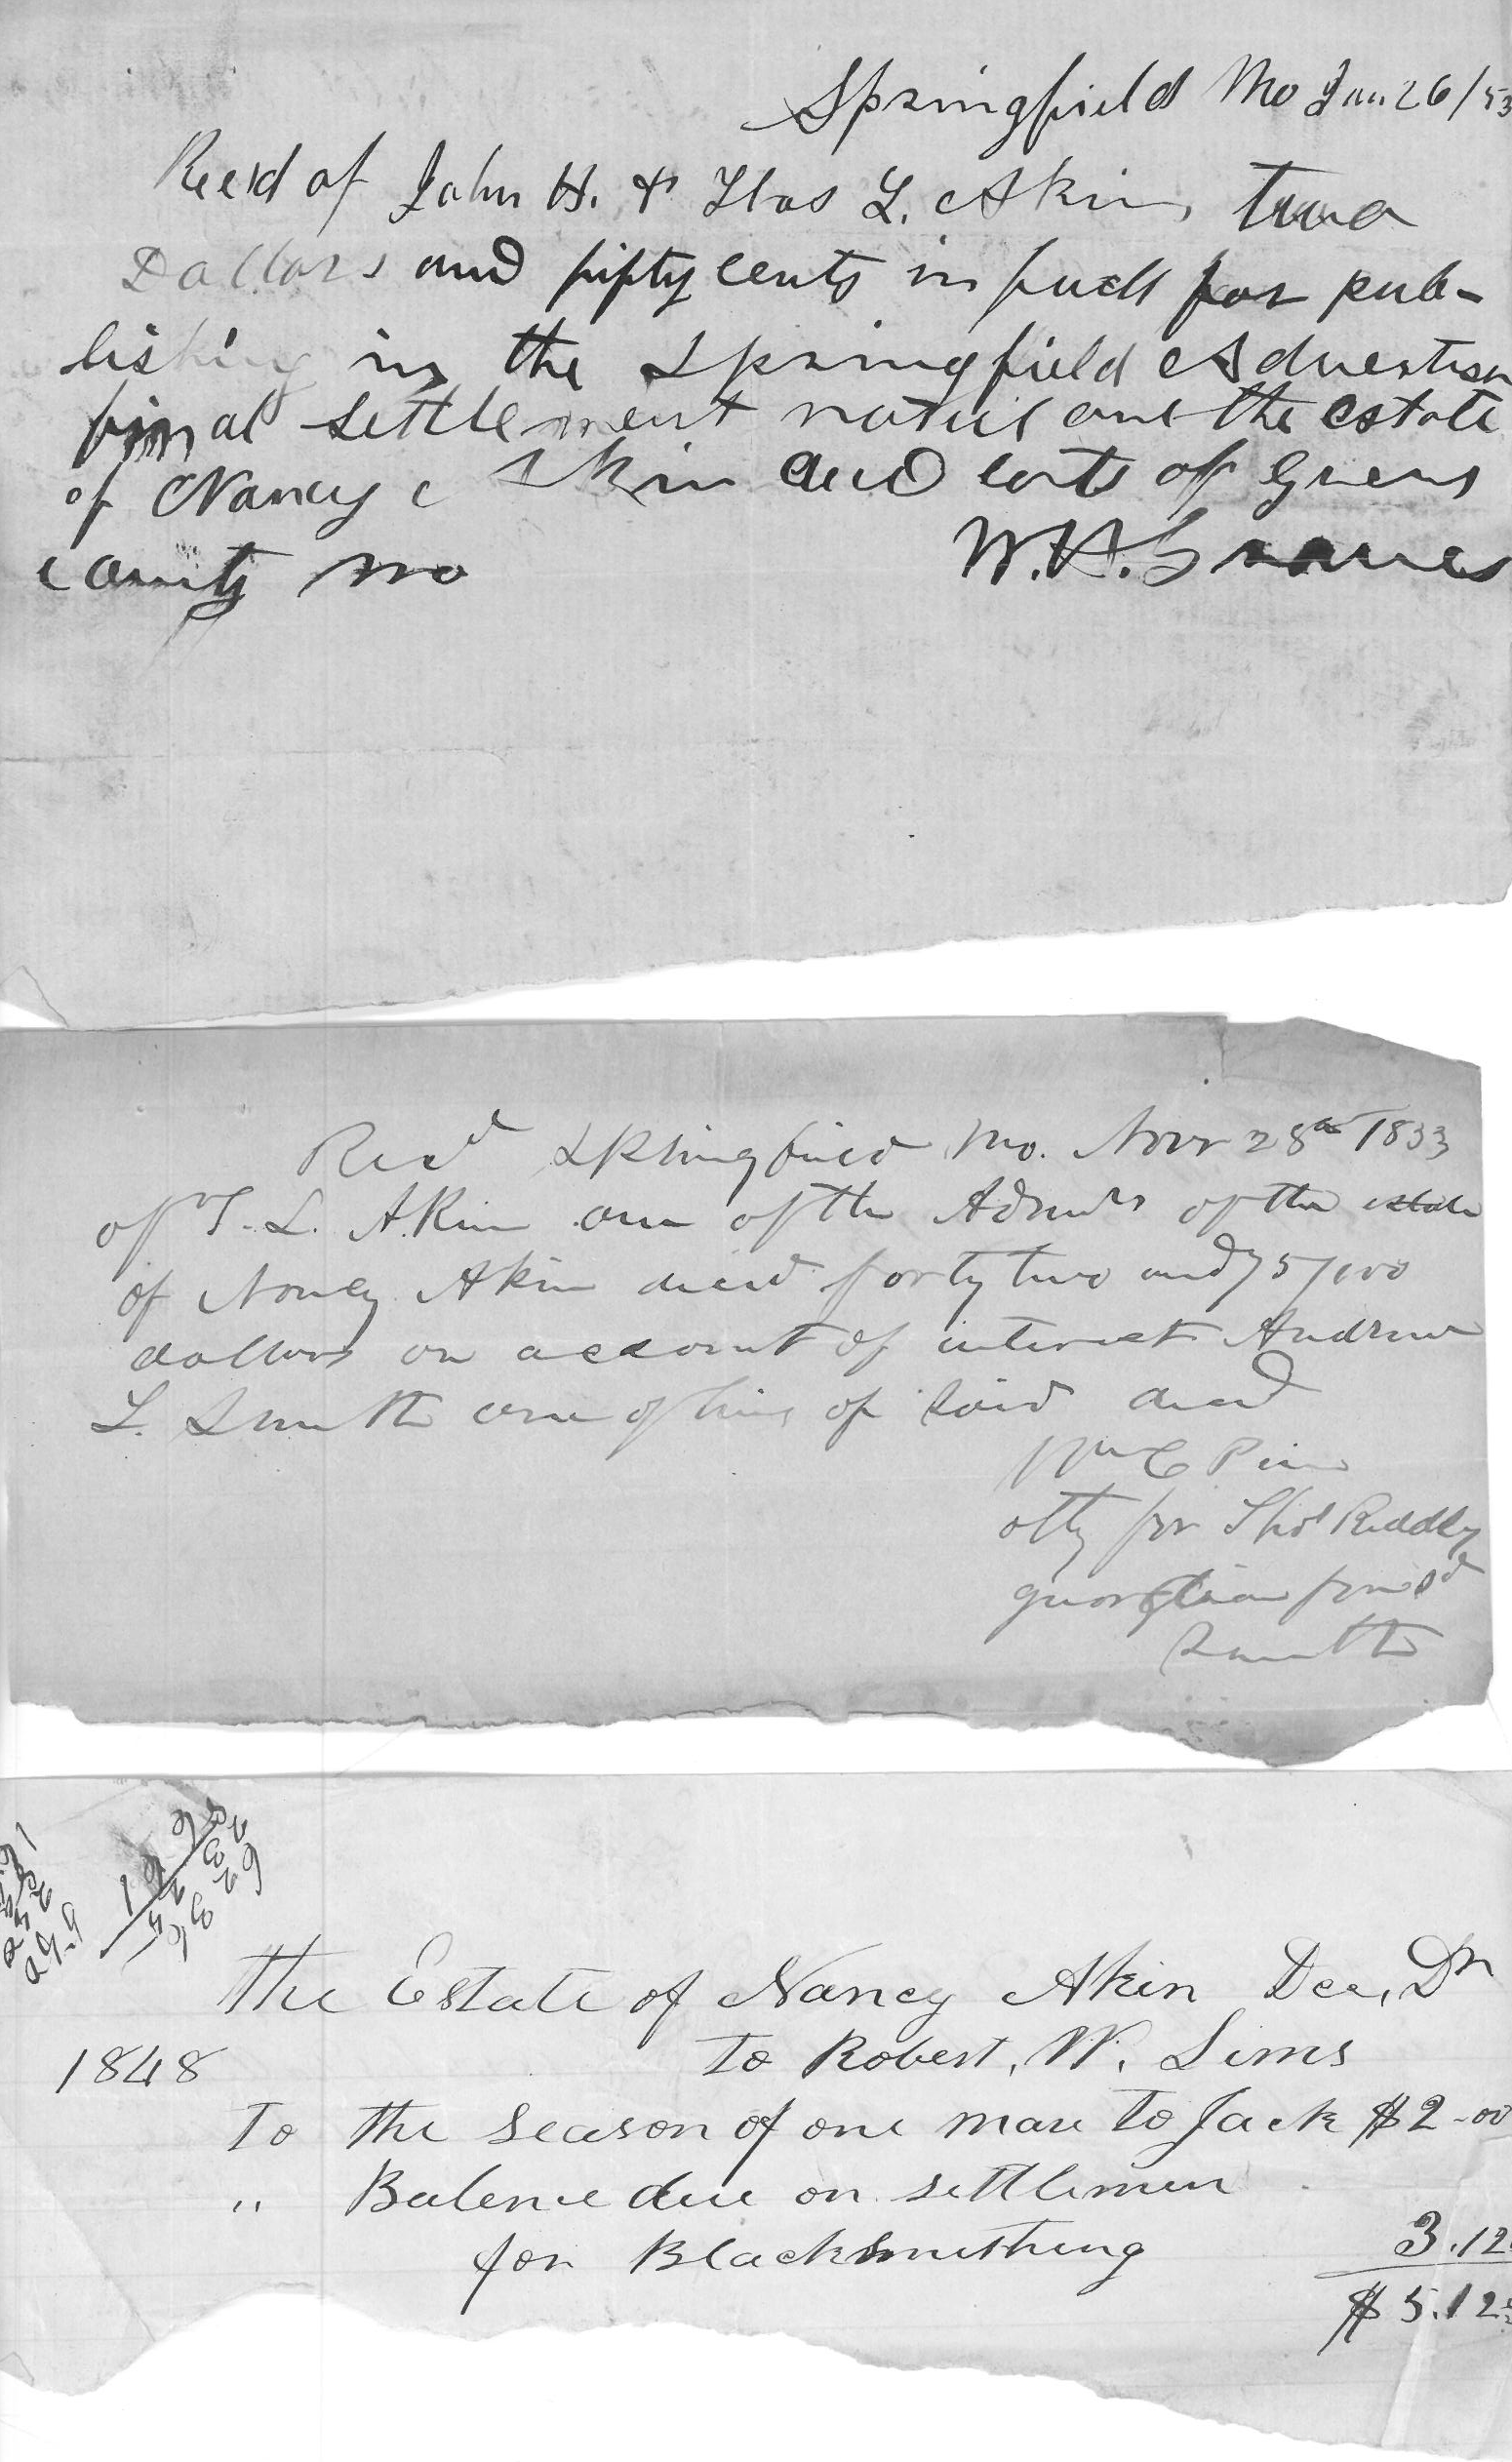 Springfield Mo Jan 26/53
Rec'd of John H. & Thos L. Akin, two
Dollars and fifty cents in full for pub-
lishing in the Springfield Advertiser
final settlement notice one the estate
of Nancy Akin decd late of Green
county mo W. H. Graves
Recd Springfield Mo. Novr 28th 1833
of T. L. Akin one of the Admrs of the estate
of Nancy Akin decd forty two and 75/100
dollars on account of interest Andrew
L. Smith one of heirs of said decd
Wm C Price
atty for Thos Ruddly
guardian for sd
Smith
The Estate of Nancy Akin Dec, Dr
1848 To Robert, W. Sims
To the season of one mare to Jack $2-00
" Balence due on settlemen
for Blacksmithing 3.12
$5.12